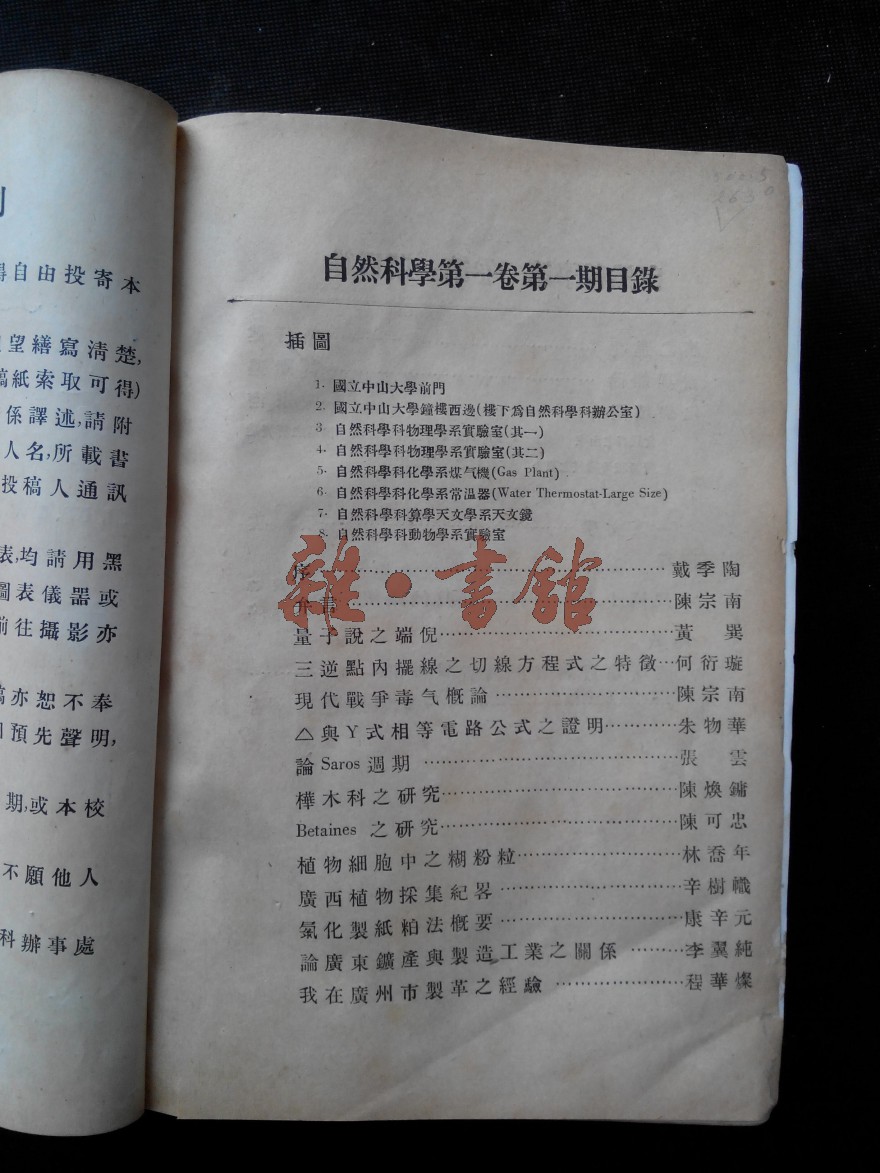 例
得自由投寄本
望繕寫清楚,
稿紙索取可得)
係譯述,請附
人名,所載書
投稿人通訊
表,均請用黑
圖表儀器或
前往攝影亦
稿亦恕不奉
預先聲明,
期,或本校
不願他人
科辦事處
自然科學第一卷第一期目錄
插圖
1. 國立中山大學前門
2. 國立中山大學鐘樓西邊(樓下爲自然科學科辦公室)
3. 自然科學科物理學系實驗室(其一)
4. 自然科學科物理學系實驗室(其二)
5. 自然科學科化學系煤气機(Gas Plant)
6. 自然科學科化學系常温器(Water Thermostat-Large Size)
7. 自然科學科算學天文學系天文鏡
8. 自然科學科動物學系實驗室
序……戴季陶
弁言……陳宗南
量子說之端倪……黃巽
三逆點內擺線之切線方程式之特徵…何衍璿
現代戰爭毒气概論……陳宗南
△與Y式相等電路公式之證明……朱物華
論 Saros 週期……張雲
樺木科之研究……陳煥鏞
Betaines 之研究……陳可忠
植物細胞中之糊粉粒……林喬年
廣西植物採集紀畧……辛樹幟
氯化製紙粕法概要……康辛元
論廣東鑛產與製造工業之關係……李翼純
我在廣州市製革之經驗……程華燦
雜·書館